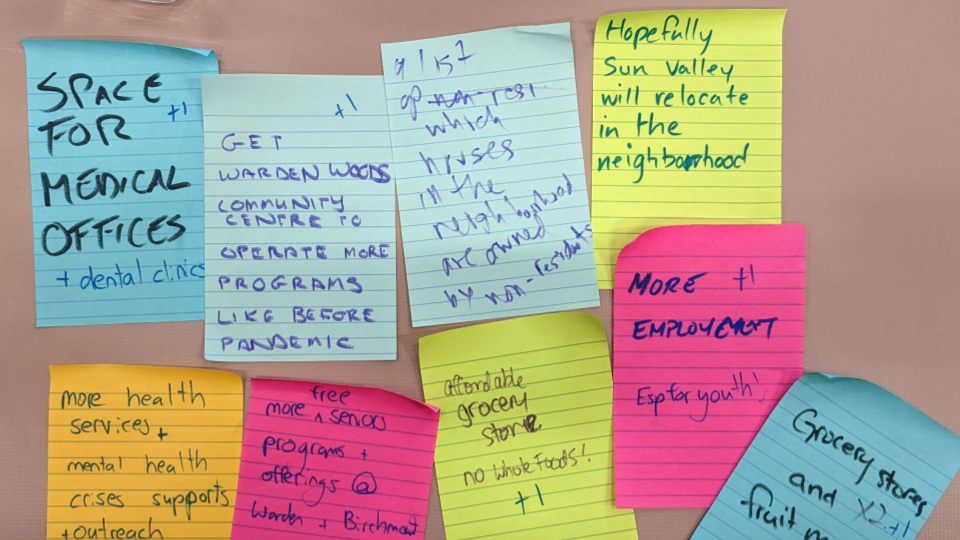 SPACE
FOR
+1
MEDICAL
OFFICES
+ dental clinics
+1
GET
WARDEN WOODS
COMMUNITY
CENTRE TO
OPERATE MORE
PROGRAMS
LIKE BEFORE
PANDEMIC
a list
of non-resi.
which
houses
in the
neighborhood
are owned
by non-residents
Hopefully
Sun Valley
will relocate
in the
neighborhood
MORE +1
EMPLOYEMENT
Esp for youth!
more health
services +
mental health
crises supports
+ outreach
free
more ^ seniors
programs +
offerings @
Warden + Birchmount
affordable
grocery
store
no Whole Foods!
+1
Grocery stores
and X2 +1
fruit